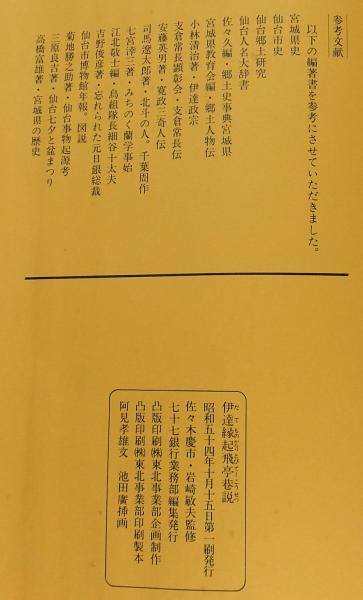 参考文献
以下の編著書を参考にさせていただきました。
宮城県史
仙台市史
仙台郷土研究
仙台人名大辞書
佐々久編・郷土史事典宮城県
宮城県教育会編・郷土人物伝
小林清治著・伊達政宗
支倉常長顕彰会・支倉常長伝
安藤英男著・寛政三奇人伝
司馬遼太郎著・北斗の人。千葉周作
七宮涬三著・みちのく蘭学事始
江北敬士編・烏組隊長細谷十太夫
吉野俊彦著・忘れられた元日銀総裁
仙台市博物館年報。図説
菊地勝之助著・仙台事物起源考
三原良吉著・仙台七夕と盆まつり
高橋富雄著・宮城県の歴史
伊達縁起飛亭巷説
昭和五十四年十月十五日第一刷発行
佐々木慶市・岩崎敏夫監修
七十七銀行業務部編集発行
凸版印刷㈱東北事業部企画制作
凸版印刷㈱東北事業部印刷製本
阿見孝雄文 池田廣挿画